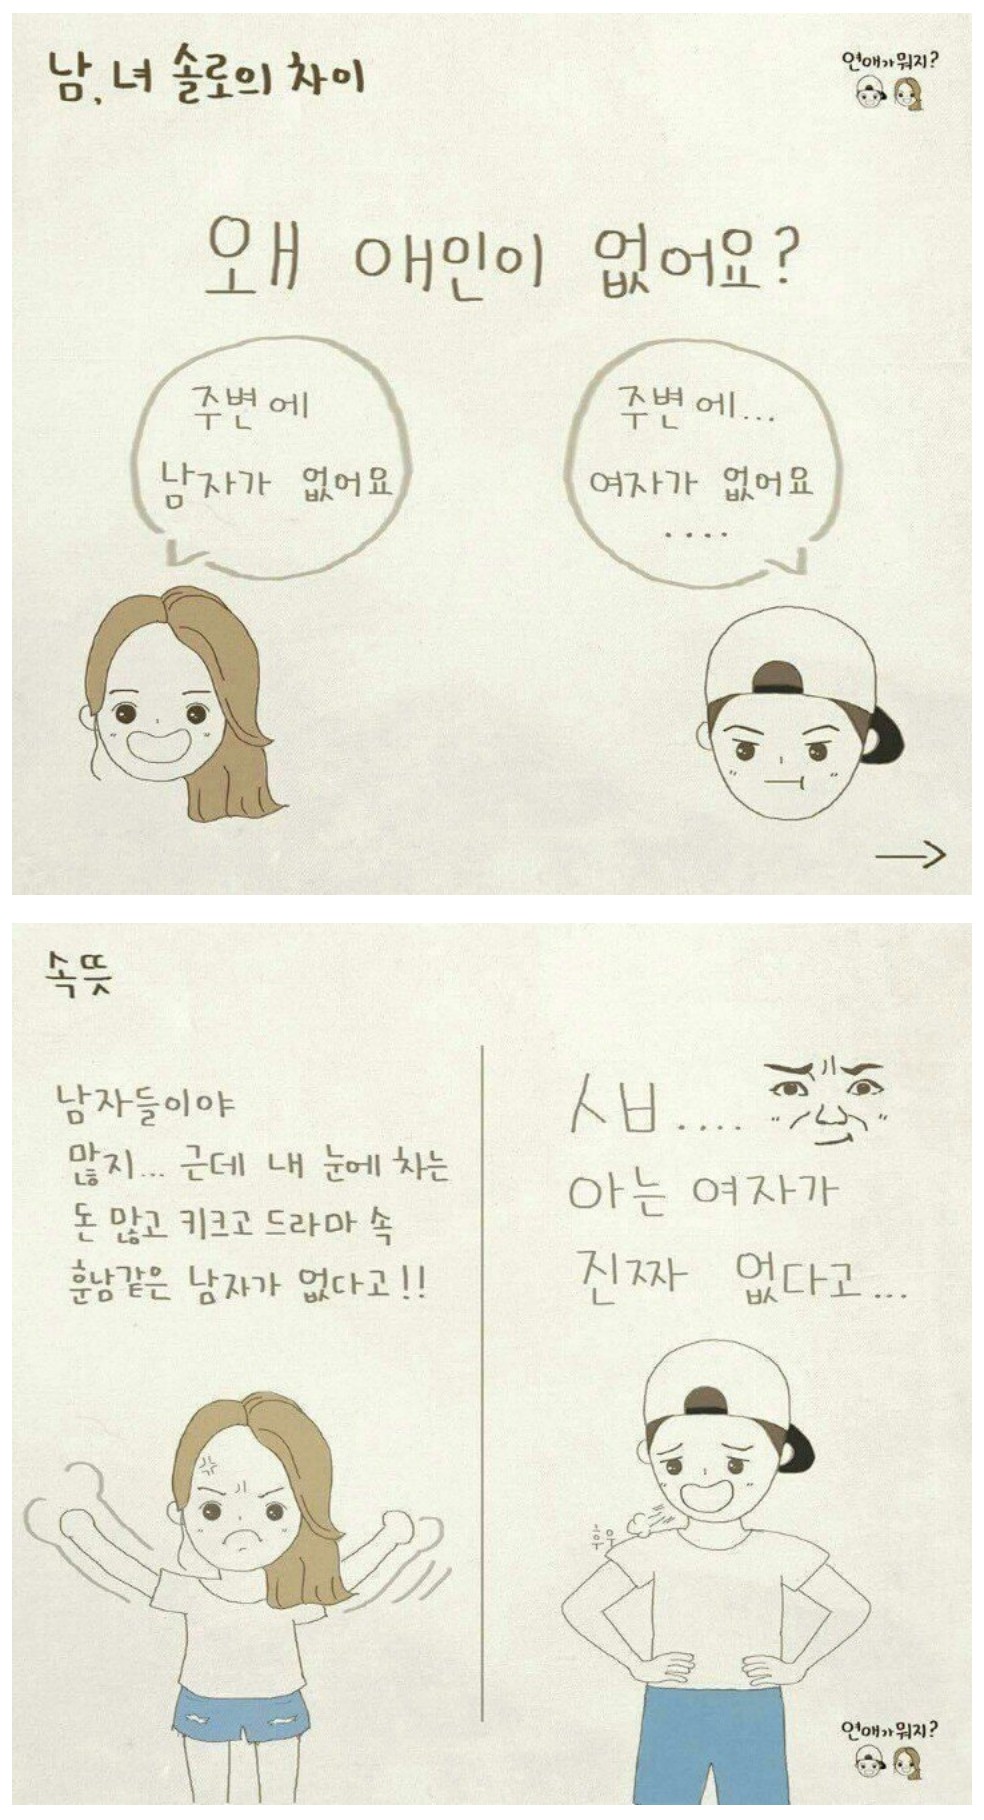 남, 녀 솔로의 차이
연애가 뭐지?
왜 애인이 없어요?
주변에
남자가 없어요
주변에...
여자가 없어요
....
속뜻
남자들이야
많지... 근데 내 눈에 차는
돈 많고 키크고 드라마 속
훈남같은 남자가 없다고!!
시브....
아는 여자가
진짜 없다고...
후우
연애가 뭐지?